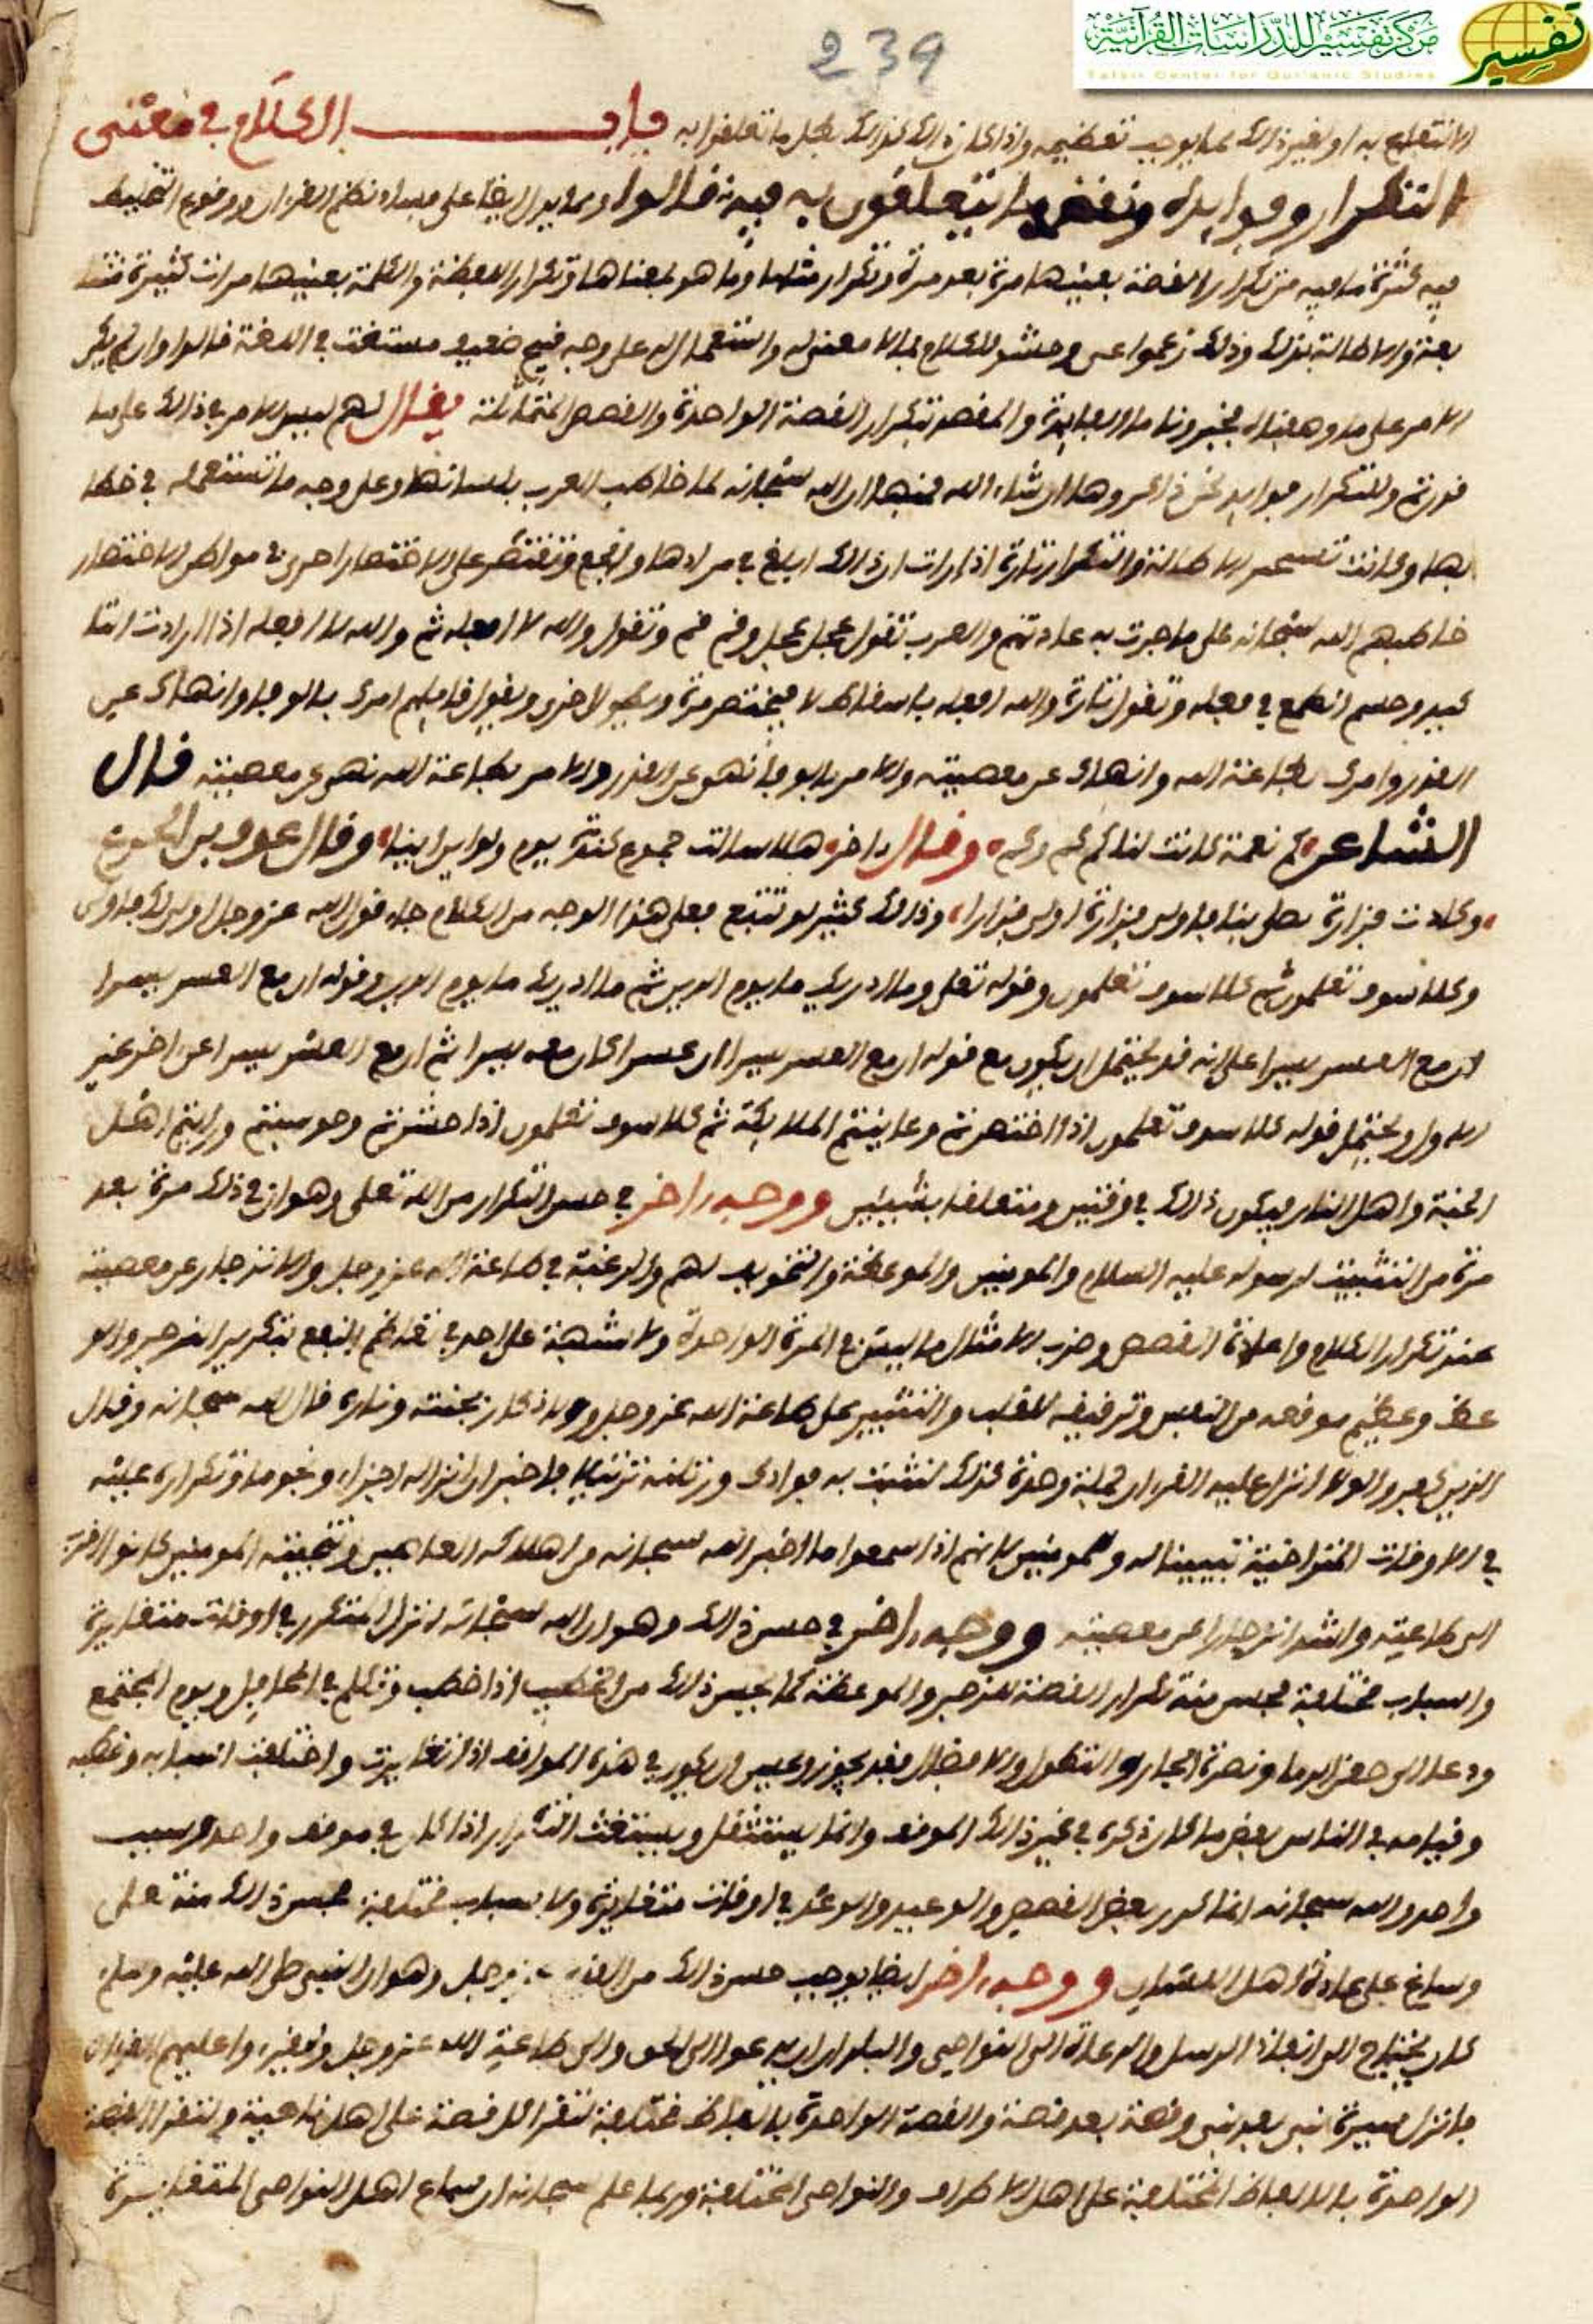 مركز تفسير للدراسات القرآنية
تفسير
Tafsir Center for Qur'anic Studies
239
الانتفاع به او لغير ذلك مما يوجب تعظيمه واذا كان ذلك كذلك بطل ما تعلقوا به باب الكلام في معنى
التكرار وفوايده ونقض ما يتعلقون به فيه قالوا ومما يدل ايضا على فساد نظم القران ووقوع التخليط
فيه كثرة ما فيه من تكرار القصة بعينها مرة بعد مرة وتكرار مثلها وما هو بمعناها وتكرار اللفظة والكلمة بعينها مرات كثيرة متتا
بعة والاطالة بذلك وذلك زعموا عي وحشو للكلام بما لا معنى له واستعمال له على وجه قبيح ضعيف مستغث في اللغة قالوا وان لم يكن
الامر على ما وصفناه فخبرونا ما الفايدة والمقصد بتكرار القصة الواحدة والقصص المتماثلة يقال لهم ليس الامر في ذلك على ما
قدرتم وللتكرار فوايد نحن ذاكروها ان شاء الله فمنها ان الله سبحانه لما خاطب العرب بلسانها وعلى وجه ما تستعمله في خطا
بها وكانت تستحسن الاطالة والتكرار تارة اذا رات ان ذلك ابلغ في مرادها وانجع وتقتصر على الاختصار اخرى في مواطن الاختصار
خاطبهم الله سبحانه على ما جرت به عادتهم والعرب تقول عجل عجل وقم قم وتقول والله لا افعله ثم والله لا افعله اذا ارادت التا
كيد وحسم الطمع في فعله وتقول تارة والله افعله باسقاط لا فيختصر مرة ويطول اخرى ويقول قايلهم امرك بالوفا وانهاك عن
الغدر وامرك بطاعة الله وانهاك عن معصيته والامر بالوفا نهي عن الغدر والامر بطاعة الله نهي عن معصيته قال
الشاعر كم نعمة كانت لنا كم كم وكم وقال اخر هلا سالت جموع كندة يوم ولوا اين اينا وقال عوف بن الخرع
وكادت فزارة تصلى بنا فاولى فزارة اولى فزارا وذلك كثير لو تتبع فعلى هذا الوجه من الكلام جاء قول الله عز وجل اولى لك فاولى
وكلا سوف تعلمون ثم كلا سوف تعلمون وقوله تعلى وما ادريك ما يوم الدين ثم ما ادريك ما يوم الدين وقوله ان مع العسر يسرا
ان مع العسر يسرا على انه قد يحتمل ان يكون مع قوله ان مع العسر يسرا ان عسرا كان معه يسرا ثم ان مع العسر يسرا عن اخر غير
الاول ويحتمل قوله كلا سوف تعلمون اذا احتضرتم وعاينتم الملايكة ثم كلا سوف تعلمون اذا حشرتم وحوسبتم ورايتم اهل
الجنة واهل النار فيكون ذلك في وقتين ومتعلقا بشيئين ووجه اخر في حسن التكرار من الله تعلى وهو ان في ذلك مرة بعد
مرة من التثبيت لرسوله عليه السلام والمومنين والموعظة والتخويف لهم والرغبة في طاعة الله عز وجل والانزجار عن معصيته
عند تكرار الكلام واعادة القصص وضرب الامثال ما ليس في المرة الواحدة ولا شبهة على احد في تعاظم النفع بتكرير الزجر والو
عظ وعظيم موقعه من النفس وترقيقه للقلب والتنبيه على طاعة الله عز وجل والاذكار بجنته وناره قال الله سبحانه وقال
الذين كفروا لولا انزل عليه القران جملة وحدة كذلك لنثبت به فوادك ورتلنه ترتيلا فاخبر ان انزاله اجزاء ونجوما وتكراره عليه
في الاوقات المتراخية تبيينا له وللمومنين لانهم اذا سمعوا ما اخبر الله سبحانه من اهلاكه الظالمين وتنجيته المومنين كانوا اقرب
الى طاعته واشد انزجارا عن معصيته ووجه اخر في حسن ذلك وهو ان الله سبحانه انزل المتكرر في اوقات متغايرة
واسباب مختلفة فحسن منه تكرار القصة للزجر والموعظة كما يحسن ذلك من الخطيب اذا خطب وتكلم في المحافل ويوم المجتمع
ودعا الى حقن الدما ونصرة الجار والتطول والافضال فقد يجوز ويحسن ان يكون في هذه المواقف اذا تغايرت واختلفت اسبابه وخطبه
وقيامه في الناس بعض ما كان ذكره في غير ذلك الموقف وانما يستثقل ويستغث التكرار اذا كان في موقف واحد وسبب
واحد والله سبحانه انما كرر بعض القصص والوعيد والوعد في اوقات متغايرة ولاسباب مختلفة فحسن ذلك منه على
وساغ على عادة اهل اللسان ووجه اخر ايضا يوجب حسن ذلك من الله عز وجل وهو ان النبي صلى الله عليه وسلم
كان يحتاج الى انفاذ الرسل والدعاة الى النواحي والبلدان ان يدعوا الى الحق والى طاعة الله عز وجل وليقرءوا عليهم القران
فانزل سيرة نبي بعد نبي وقصة بعد قصة والقصة الواحدة بالفاظ مختلفة لتقرا كل قصة على اهل ناحية ولتقرا القصة
الواحدة بالالفاظ المختلفة على اهل الاطراف والنواحي المختلفة وربما علم سبحانه ان سماع اهل النواحي المتغايرة